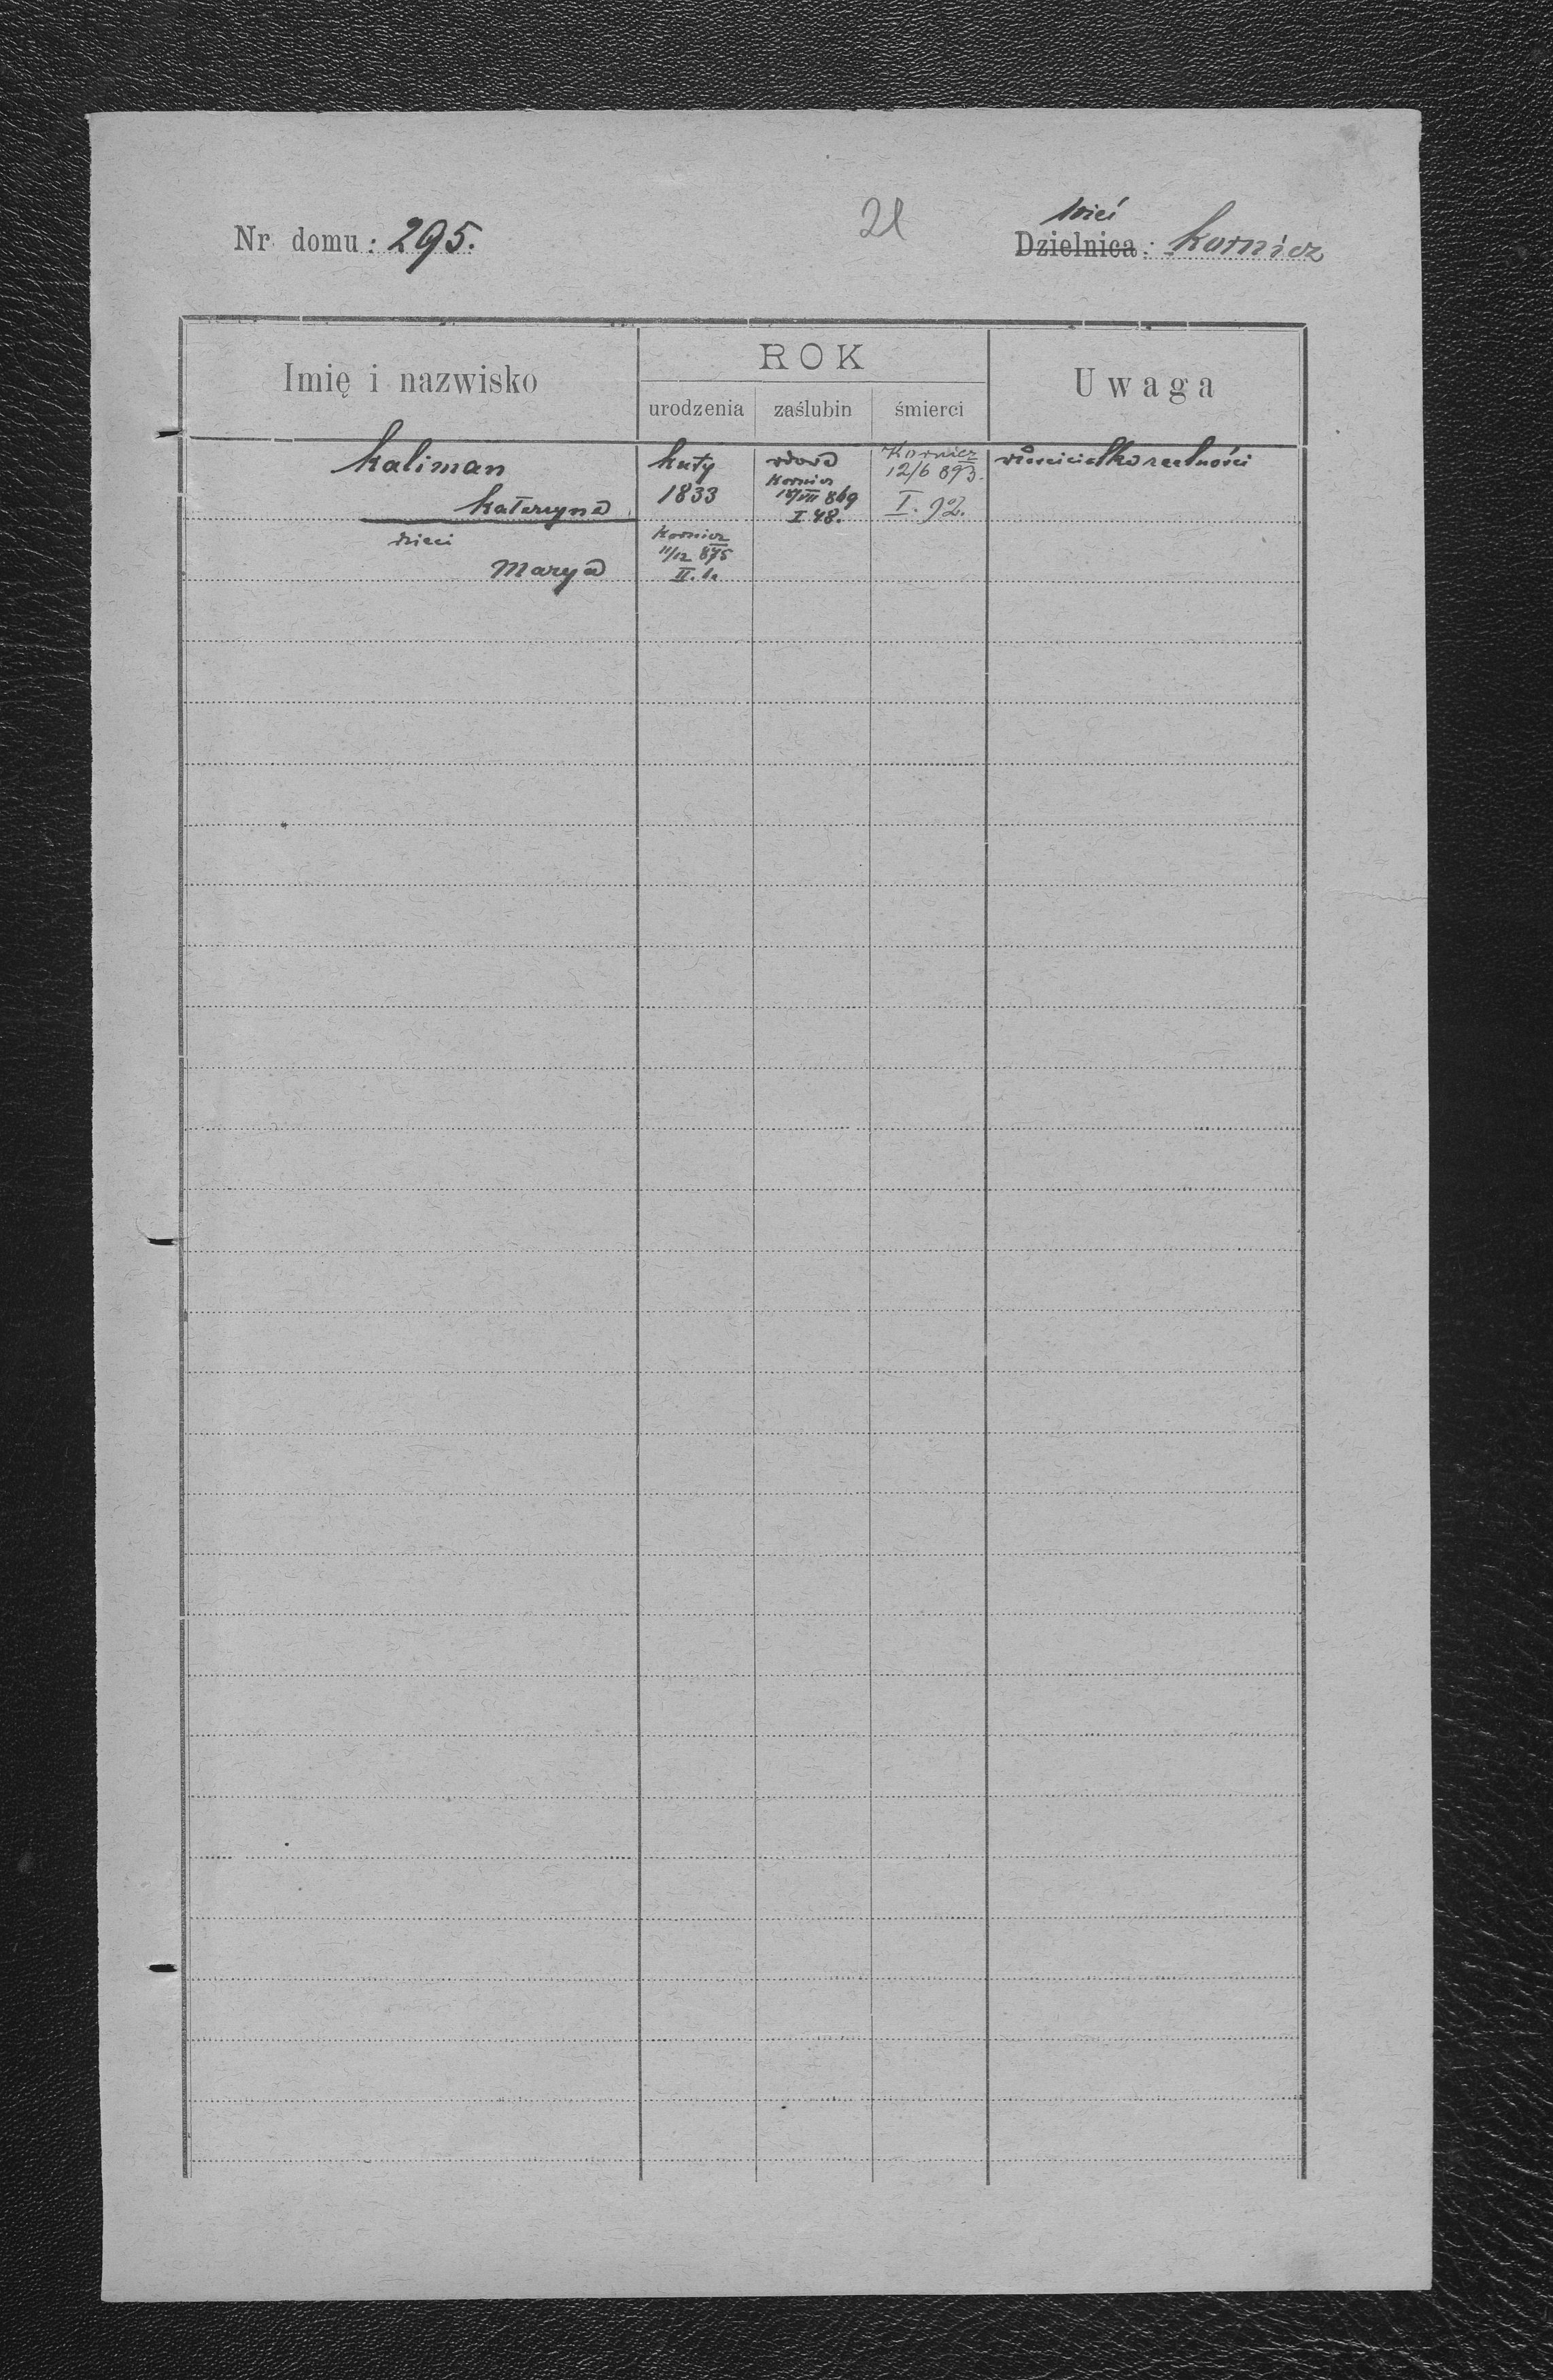 Nr domu: 295.
21
wieś
Dzielnica: Kornicz
Imię i nazwisko
ROK
urodzenia
zaślubin
śmierci
Uwaga
Kaliman
Kateryna
Kuty
1833
wdowa
Kornicz
VII 869
I 48.
Kornicz
12/6 893.
I. 92.
właścicielka realności
dzieci
Marya
Kornicz
11/12 875
II. 1.